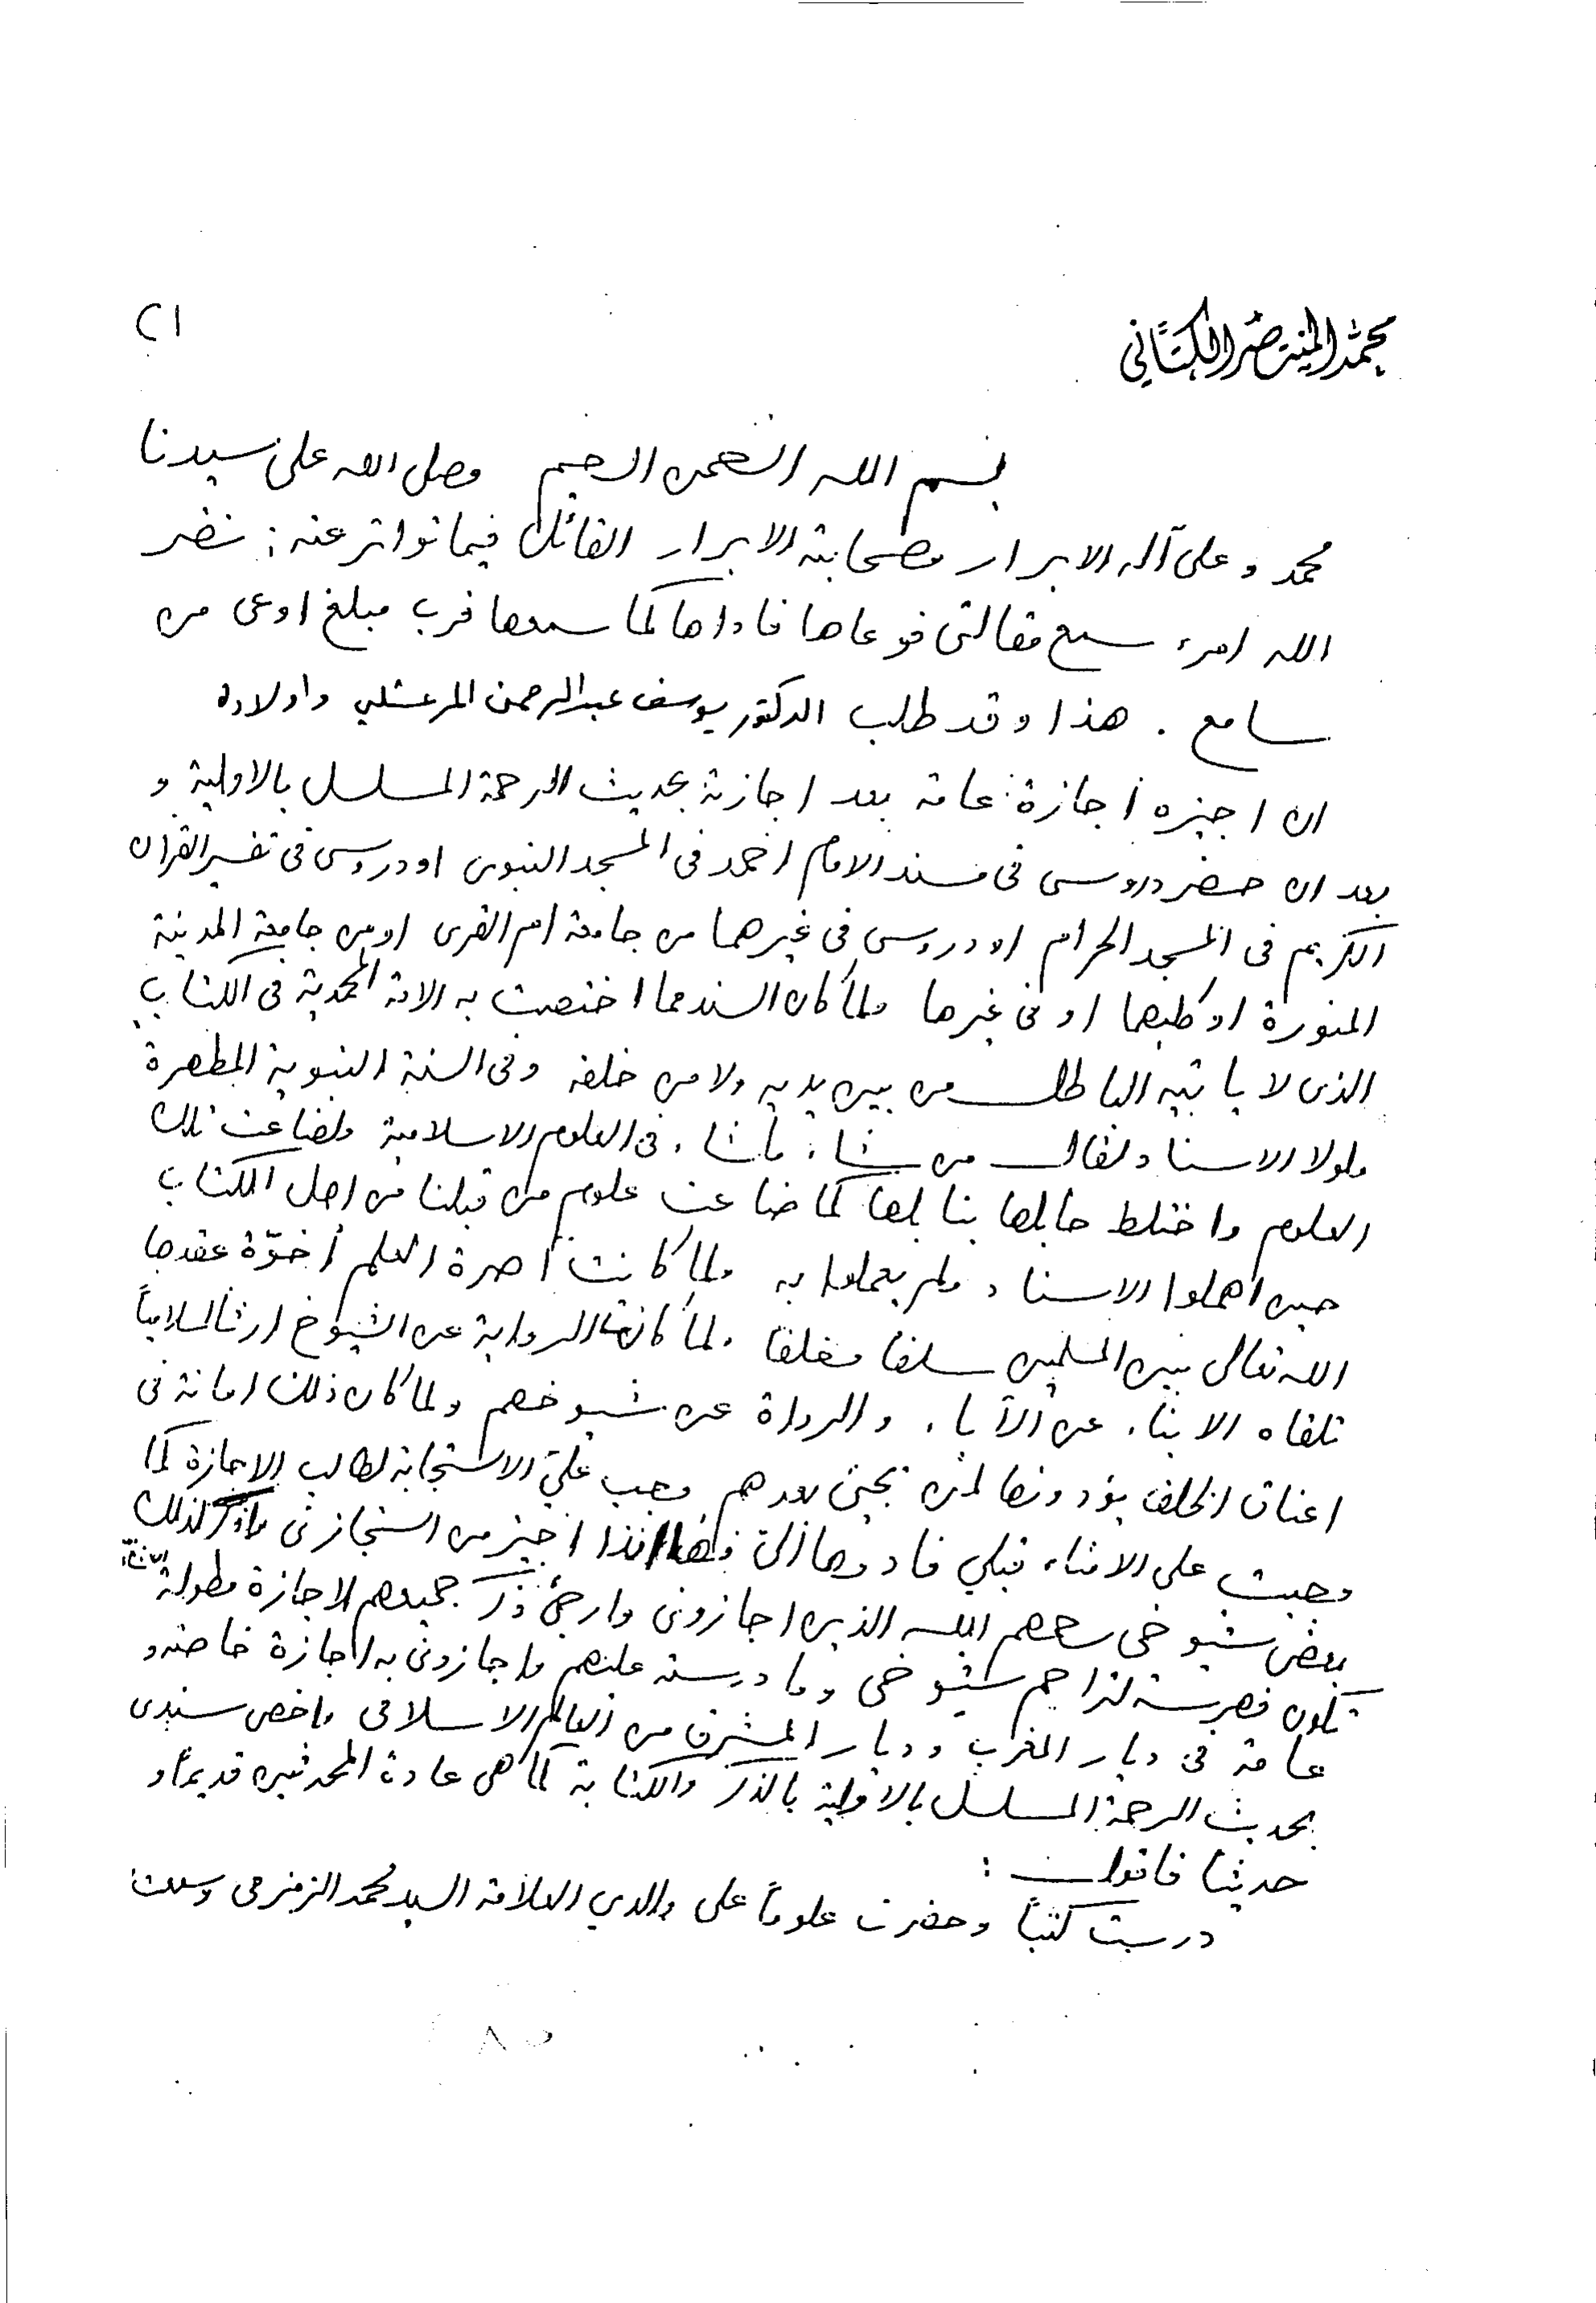 محمد المنتصر الكتاني
١)
بسم الله الرحمن الرحيم وصلى الله على سيدنا
محمد وعلى آله الابرار وصحابته الابرار القائل فيما تواتر عنه: نضر
الله امرء سمع مقالتى فوعاها فاداها كما سمعها فرب مبلغ اوعى من
سامع . هذا وقد طلب الدكتور يوسف عبد الرحمن المرعشلي واولاده
ان اجيزه اجازة عامة بعد اجازته بحديث الرحمة المسلسل بالاولية و
بعد ان حضر دروسى فى مسند الامام احمد فى المسجد النبوى او دروسى فى تفسير القران
الكريم فى المسجد الحرام او دروسى فى غيرهما من جامعة ام القرى او من جامعة المدينة
المنورة او كليهما او فى غيرها ولما كان السند مما اختصت به الامة المحمدية فى الكتاب
الذى لا ياتيه الباطل من بين يديه ولا من خلفه وفى السنة النبوية المطهرة
ولولا الاسناد لقال من شاء ما شاء فى العلوم الاسلامية ولضاعت تلك
العلوم واختلط حابلها بنابلها كما ضاعت علوم من قبلنا من اهل الكتاب
حين اهملوا الاسناد ولم يعملوا به ولما كانت آصرة العلم أخوّة عقدها
الله تعالى بين المسلمين سلفا وخلفا ولما كانت الرواية عن الشيوخ ارثا اسلاميا
تلقاه الابناء عن الآباء والرواة عن شيوخهم ولما كان ذلك امانة فى
اعناق الخلف يؤدونها لمن يجئ بعدهم وجب عليّ الاستجابة لطالب الاجازة كما
وجبت على الامناء قبلي فادوها الىّ فهاانذا اجيز من استجازنى واذكر لذلك
بعض شيوخى رحمهم الله الذين اجازونى وارجئ ذكر جميعهم لاجازة مطولة ان شاء الله
تكون فهرسة لتراجم شيوخى وما درسته عليهم واجازونى به اجازة خاصة و
عامة فى ديار المغرب وديار المشرق من العالم الاسلامى واخص سندى
بحديث الرحمة المسلسل بالاولية بالذكر والكتابة كما هى عادة المحدثين قديماً و
حديثا فاقول :
درست كتباً وحضرت علوماً على والدي العلامة السيد محمد الزمزمى وسمعت